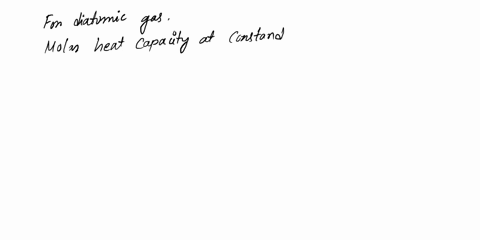 For diatomic gas.
Molar heat Capacity at Constand